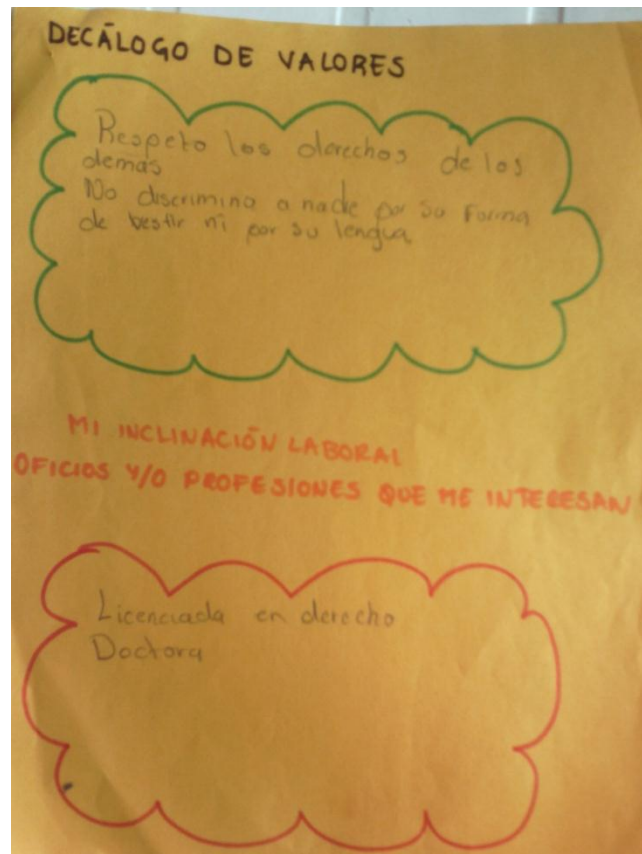 DECÁLOGO DE VALORES
Respeto los derechos de los
demas
No discrimino a nadie por su forma
de bestir ni por su lengua
MI INCLINACIÓN LABORAL
OFICIOS Y/O PROFESIONES QUE ME INTERESAN
Licenciada en derecho
Doctora